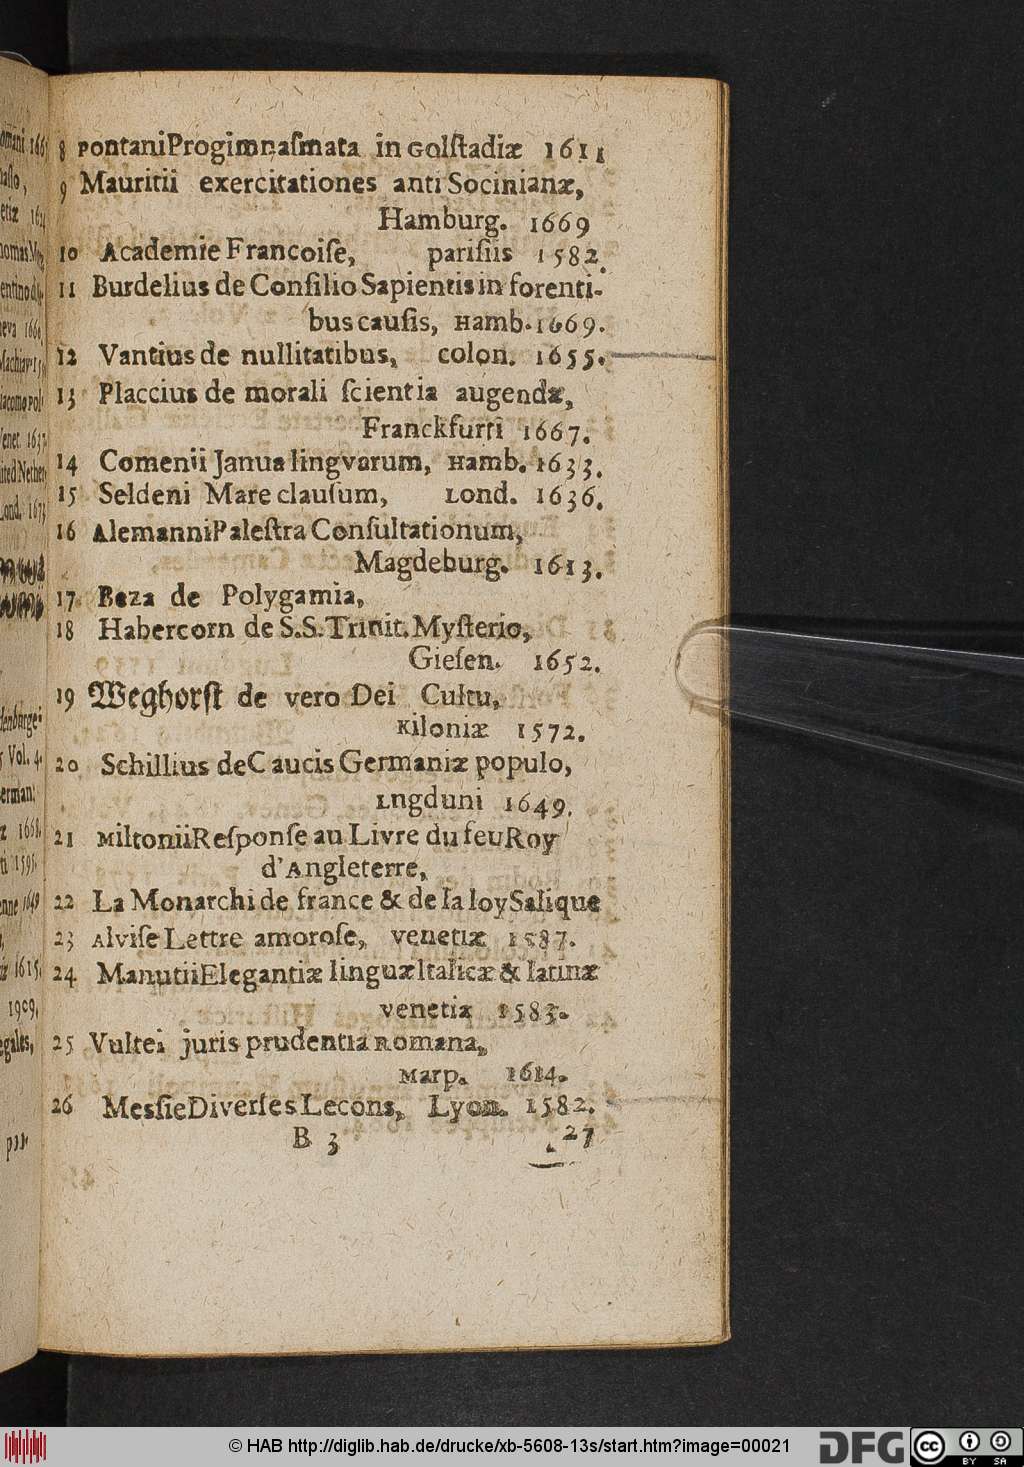 8 PontaniProgimnaſmata in Golſtadiæ 1611
9 Mauritii exercitationes anti Socinianæ,
Hamburg. 1669
10 Academie Francoiſe, pariſiis 1582.
11 Burdelius de Conſilio Sapientis in forenti-
bus cauſis, Hamb. 1669.
12 Vantius de nullitatibus, colon. 1655.
13 Placcius de morali ſcientia augendæ,
Franckfurti 1667.
14 Comenii Janua lingvarum, Hamb. 1633.
15 Seldeni Mare clauſum, Lond. 1636.
16 AlemanniPaleſtra Conſultationum,
Magdeburg. 1613.
17 Beza de Polygamia,
18 Habercorn de S.S. Trinit. Myſterio,
Gieſen. 1652.
19 Weghorſt de vero Dei Cultu,
Kiloniæ 1572.
20 Schillius de Caucis Germaniæ populo,
Lngduni 1649.
21 MiltoniiReſponſe au Livre du feu Roy
d'Angleterre,
22 La Monarchi de france & de la loy Salique
23 Alviſe Lettre amoroſe, venetiæ 1587.
24 ManutiiElegantiæ linguæ Italicæ & latinæ
venetiæ 1583.
25 Vultei juris prudentia Romana,
Marp. 1614.
26 MesſieDiverſes Lecons, Lyon. 1582.
B 3 27
© HAB http://diglib.hab.de/drucke/xb-5608-13s/start.htm?image=00021
DFG
cc BY SA